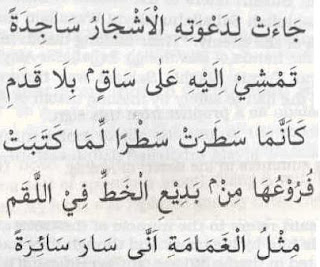 جَاءَتْ لِدَعْوَتِهِ الْاَشْجَارُ سَاجِدَةً
تَمْشِيْ اِلَيْهِ عَلٰى سَاقٍۭ بِلَا قَدَمِ
كَاَنَّمَا سَطَرَتْ سَطْرًا لِّمَا كَتَبَتْ
فُرُوْعُهَا مِنْۢ بَدِيْعِ الْخَطِّ فِيْ اللَّقَمِ
مِثْلُ الْغَمَامَةِ اَنّٰى سَارَ سَائِرَةً